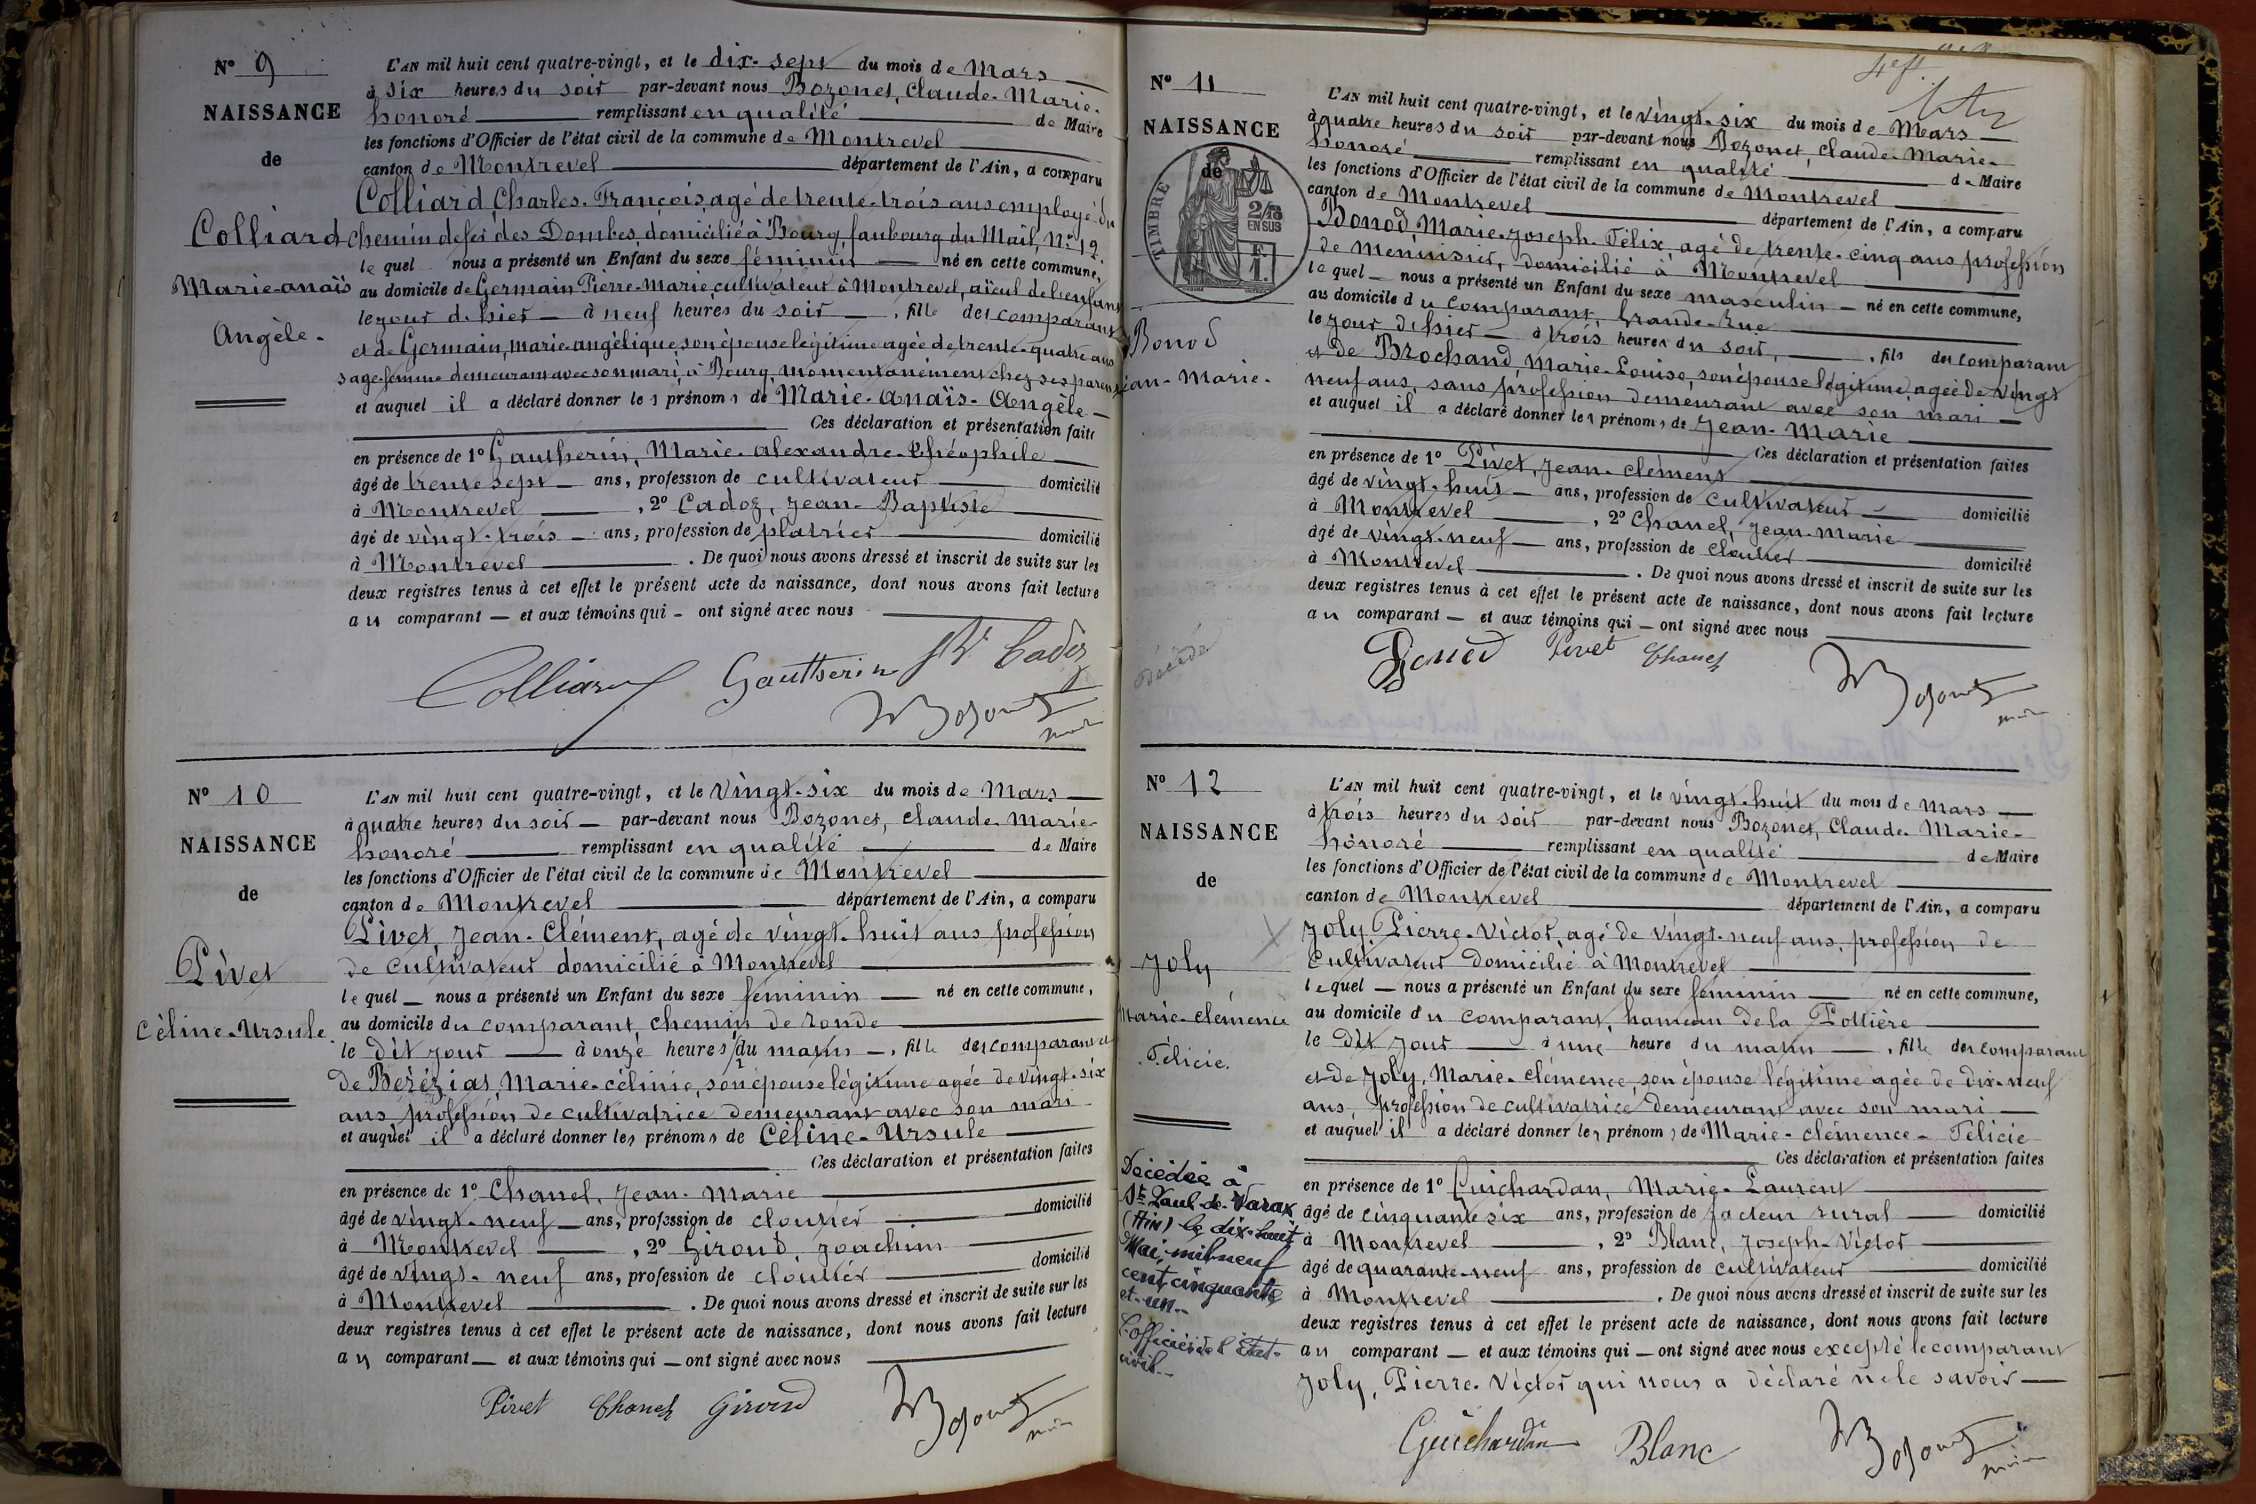 N° 9
NAISSANCE
de
Colliard
Marie-anaïs
Angèle.
L'AN mil huit cent quatre-vingt, et le dix-sept du mois de Mars
à six heures du soir par-devant nous Bozonet, Claude-Marie-
honoré remplissant en qualité de Maire
les fonctions d'Officier de l'état civil de la commune de Montrevel
canton de Montrevel département de l'Ain, a comparu
Colliard Charles-François, agé de trente-trois ans employé du
chemin de fer des Dombes, domicilié à Bourg, faubourg du Mail, N° 12
le quel nous a présenté un Enfant du sexe féminin né en cette commune,
au domicile de Germain Pierre-Marie cultivateur à Montrevel, aïeul de l'enfant
le jour d'hier à neuf heures du soir, fille des comparant
et de Germain, marie-angélique son épouse légitime agée de trente-quatre ans
sage-femme demeurant avec son mari, à Bourg, momentanément chez ses parents
et auquel il a déclaré donner les prénoms de Marie-anaïs-Angèle
Ces déclaration et présentation faites
en présence de 1° Gautherin, Marie-alexandre-théophile
âgé de trente sept ans, profession de cultivateur domicilié
à Montrevel, 2° Cadoz, Jean-Baptiste
âgé de vingt-trois ans, profession de platrier domicilié
à Montrevel. De quoi nous avons dressé et inscrit de suite sur les
deux registres tenus à cet effet le présent acte de naissance, dont nous avons fait lecture
au comparant et aux témoins qui ont signé avec nous
Colliard Gautherin Cadoz
Bozonet
maire
N° 10
NAISSANCE
de
Pivet
Céline-Ursule.
L'AN mil huit cent quatre-vingt, et le vingt-six du mois de Mars
à quatre heures du soir par-devant nous Bozonet, Claude-Marie-
honoré remplissant en qualité de Maire
les fonctions d'Officier de l'état civil de la commune de Montrevel
canton de Montrevel département de l'Ain, a comparu
Pivet, Jean-Clément, agé de vingt-huit ans profession
de cultivateur domicilié à Montrevel
le quel nous a présenté un Enfant du sexe féminin né en cette commune,
au domicile du comparant, chemin de ronde
le dit jour à onze heures du matin, fille des comparant et
de Bérézias, Marie-célinie, son épouse légitime agée de vingt-six
ans, profession de cultivatrice demeurant avec son mari
et auquel il a déclaré donner les prénoms de Céline-Ursule
Ces déclaration et présentation faites
en présence de 1° Chanel, Jean-Marie
âgé de vingt-neuf ans, profession de cloutier domicilié
à Montrevel, 2° Giroud, Joachim
âgé de vingt-neuf ans, profession de cloutier domicilié
à Montrevel. De quoi nous avons dressé et inscrit de suite sur les
deux registres tenus à cet effet le présent acte de naissance, dont nous avons fait lecture
au comparant et aux témoins qui ont signé avec nous
Pivet Chanel Giroud
Bozonet
maire
N° 11
NAISSANCE
de
TIMBRE
2/10
EN SUS
Bonod
Jean-Marie.
Décédé
L'AN mil huit cent quatre-vingt, et le vingt-six du mois de Mars
à quatre heures du soir par-devant nous Bozonet, Claude-Marie-
honoré remplissant en qualité de Maire
les fonctions d'Officier de l'état civil de la commune de Montrevel
canton de Montrevel département de l'Ain, a comparu
Bonod Marie-Joseph-Félix, agé de trente-cinq ans profession
de menuisier, domicilié à Montrevel
le quel nous a présenté un Enfant du sexe masculin né en cette commune,
au domicile du comparant, Grande-Rue
le jour d'hier à trois heures du soir, fils des comparant
et de Brochand, Marie-Louise, son épouse légitime, agée de vingt
neuf ans, sans profession demeurant avec son mari
et auquel il a déclaré donner les prénoms de Jean-Marie
Ces déclaration et présentation faites
en présence de 1° Pivet, Jean-clément
âgé de vingt-huit ans, profession de cultivateur domicilié
à Montrevel, 2° Chanel, Jean-Marie
âgé de vingt-neuf ans, profession de cloutier domicilié
à Montrevel. De quoi nous avons dressé et inscrit de suite sur les
deux registres tenus à cet effet le présent acte de naissance, dont nous avons fait lecture
au comparant et aux témoins qui ont signé avec nous
Bonod Pivet Chanel
Bozonet
maire
N° 12
NAISSANCE
de
Joly
Marie-clémence
Félicie.
Décédée à
St Paul-de-Varax
(Ain) le dix-huit
Mai mil neuf
cent cinquante
et-un.-
L'officier de l'état-
civil.-
L'AN mil huit cent quatre-vingt, et le vingt-huit du mois de Mars
à trois heures du soir par-devant nous Bozonet, Claude-Marie-
honoré remplissant en qualité de Maire
les fonctions d'Officier de l'état civil de la commune de Montrevel
canton de Montrevel département de l'Ain, a comparu
Joly, Pierre-Victor, agé de vingt-neuf ans, profession de
cultivateur domicilié à Montrevel
le quel nous a présenté un Enfant du sexe féminin né en cette commune,
au domicile du comparant, hameau de la
le dit jour à une heure du matin, fille des comparant
et de Joly, Marie-clémence, son épouse légitime agée de dix-neuf
ans, profession de cultivatrice demeurant avec son mari
et auquel il a déclaré donner les prénoms de Marie-clémence-Félicie
Ces déclaration et présentation faites
en présence de 1° Guichardan, Marie-Laurent
âgé de cinquante six ans, profession de facteur rural domicilié
à Montrevel, 2° Blanc, Joseph-Victor
âgé de quarante-neuf ans, profession de cultivateur domicilié
à Montrevel. De quoi nous avons dressé et inscrit de suite sur les
deux registres tenus à cet effet le présent acte de naissance, dont nous avons fait lecture
au comparant et aux témoins qui ont signé avec nous excepté le comparant
Joly, Pierre-Victor qui nous a déclaré ne le savoir
Guichardan Blanc
Bozonet
maire